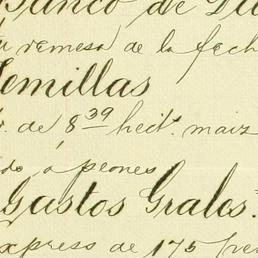 Banco de
su remesa de la fech
Semillas
de 8 39 hect. maiz
do á peones
Gastos Grales.
expreso de 175